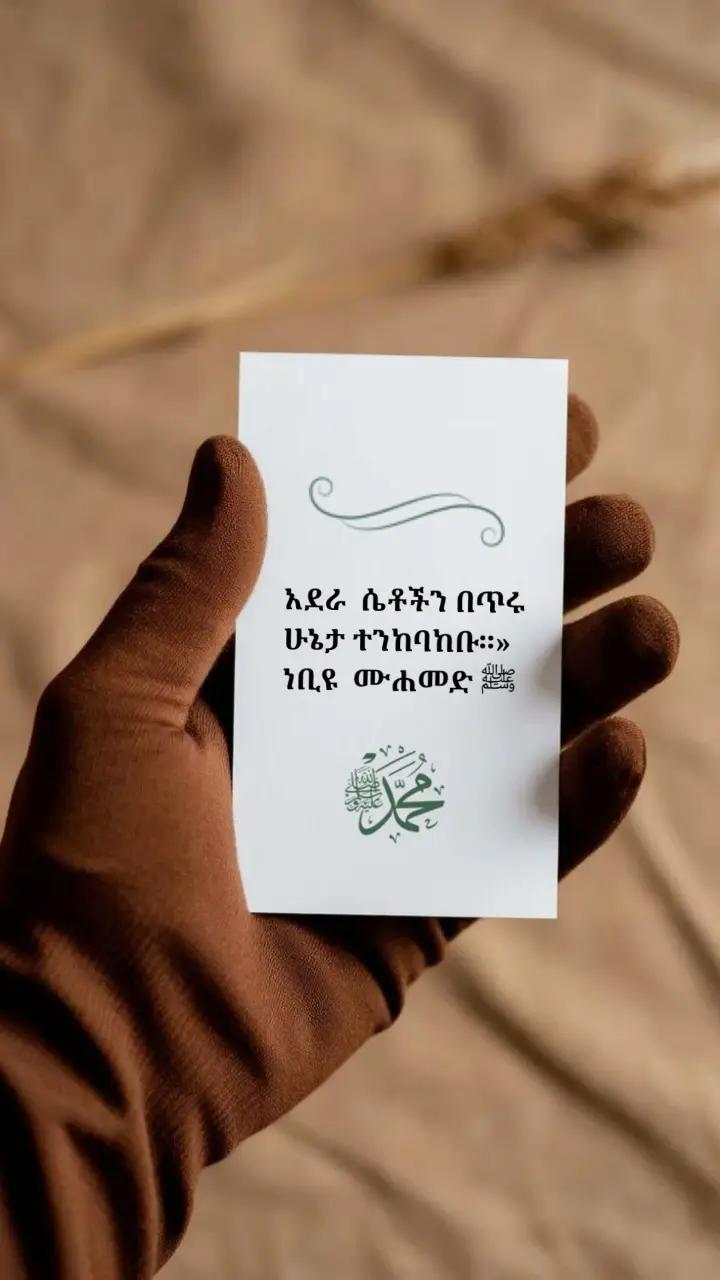 አደራ ሴቶችን በጥሩ
ሁኔታ ተንከባከቡ።»
ነቢዩ ሙሐመድ ﷺ
محمد ﷺ